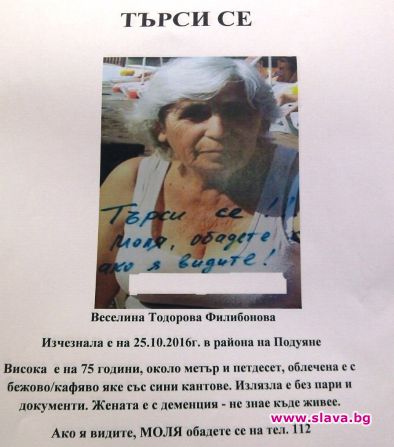 ТЪРСИ СЕ
Търси се!!
Моля, обадете
ако я видите!
Веселина Тодорова Филибонова
Изчезнала е на 25.10.2016г. в района на Подуяне
Висока е на 75 години, около метър и петдесет, облечена е с
бежово/кафяво яке със сини кантове. Излязла е без пари и
документи. Жената е с деменция - не знае къде живее.
www.slava.bg
Ако я видите, МОЛЯ обадете се на тел. 112